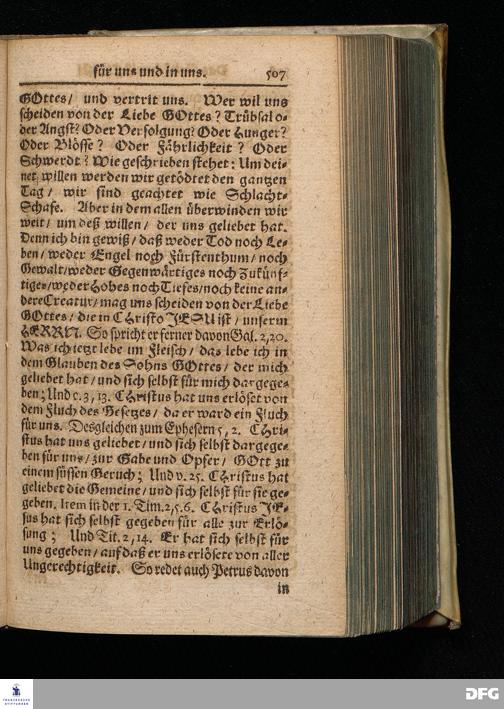 für uns und in uns. 507
GOttes/ und vertrit uns. Wer wil uns
scheiden von der Liebe GOttes? Trübsal o-
der Angst? Oder Verfolgung? Oder Hunger?
Oder Blösse? Oder Fährlichkeit? Oder
Schwerdt? Wie geschrieben stehet: Um dei-
net willen werden wir getödtet den gantzen
Tag/ wir sind geachtet wie Schlacht-
Schafe. Aber in dem allen überwinden wir
weit/ um deß willen/ der uns geliebet hat.
Denn ich bin gewiß/ daß weder Tod noch Le-
ben/ weder Engel noch Fürstenthum/ noch
Gewalt/weder Gegenwärtiges noch Zukünf-
tiges/weder Hohes noch Tiefes/noch keine an-
dere Creatur/ mag uns scheiden von der Liebe
GOttes/ die in CHristo JESU ist/ unserm
HERRN. So spricht er ferner davon Gal. 2,20.
Was ich ietzt lebe im Fleisch/ das lebe ich in
dem Glauben des Sohns GOttes/ der mich
geliebet hat/und sich selbst für mich dargege-
ben; Und c. 3, 13. CHristus hat uns erlöset von
dem Fluch des Gesetzes/ da er ward ein Fluch
für uns. Desgleichen zum Ephesern 5, 2. CHri-
stus hat uns geliebet/und sich selbst dargege-
ben für uns/zur Gabe und Opfer/ GOtt zu
einem süssen Geruch; Und v. 25. CHristus hat
geliebet die Gemeine/ und sich selbst für sie ge-
geben. Item in der 1. Tim. 2,5.6. CHristus JE-
sus hat sich selbst gegeben für alle zur Erlö-
sung; Und Tit. 2, 14. Er hat sich selbst für
uns gegeben/ auf daß er uns erlösete von aller
Ungerechtigkeit. So redet auch Petrus davon
in
FRANCKESCHE
STIFTUNGEN
DFG